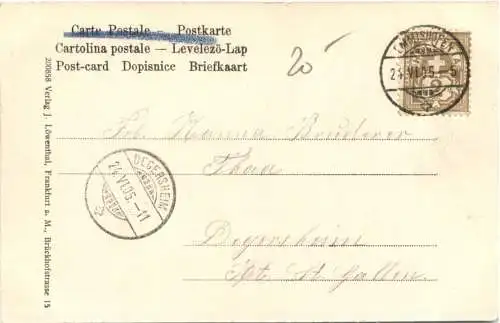 Carte Postale — Postkarte
Cartolina postale — Levelezö-Lap
Post-card Dopisnice Briefkaart
20
EMMISHOFEN
24.VI.05.-5
DEGERSHEIM
24.VI.05.-11
Frl. Hanna Bruderer
Thaa
Degersheim
Kt. St. Gallen
200858 Verlag J. Löwenthal, Frankfurt a. M., Brückhofstrasse 15